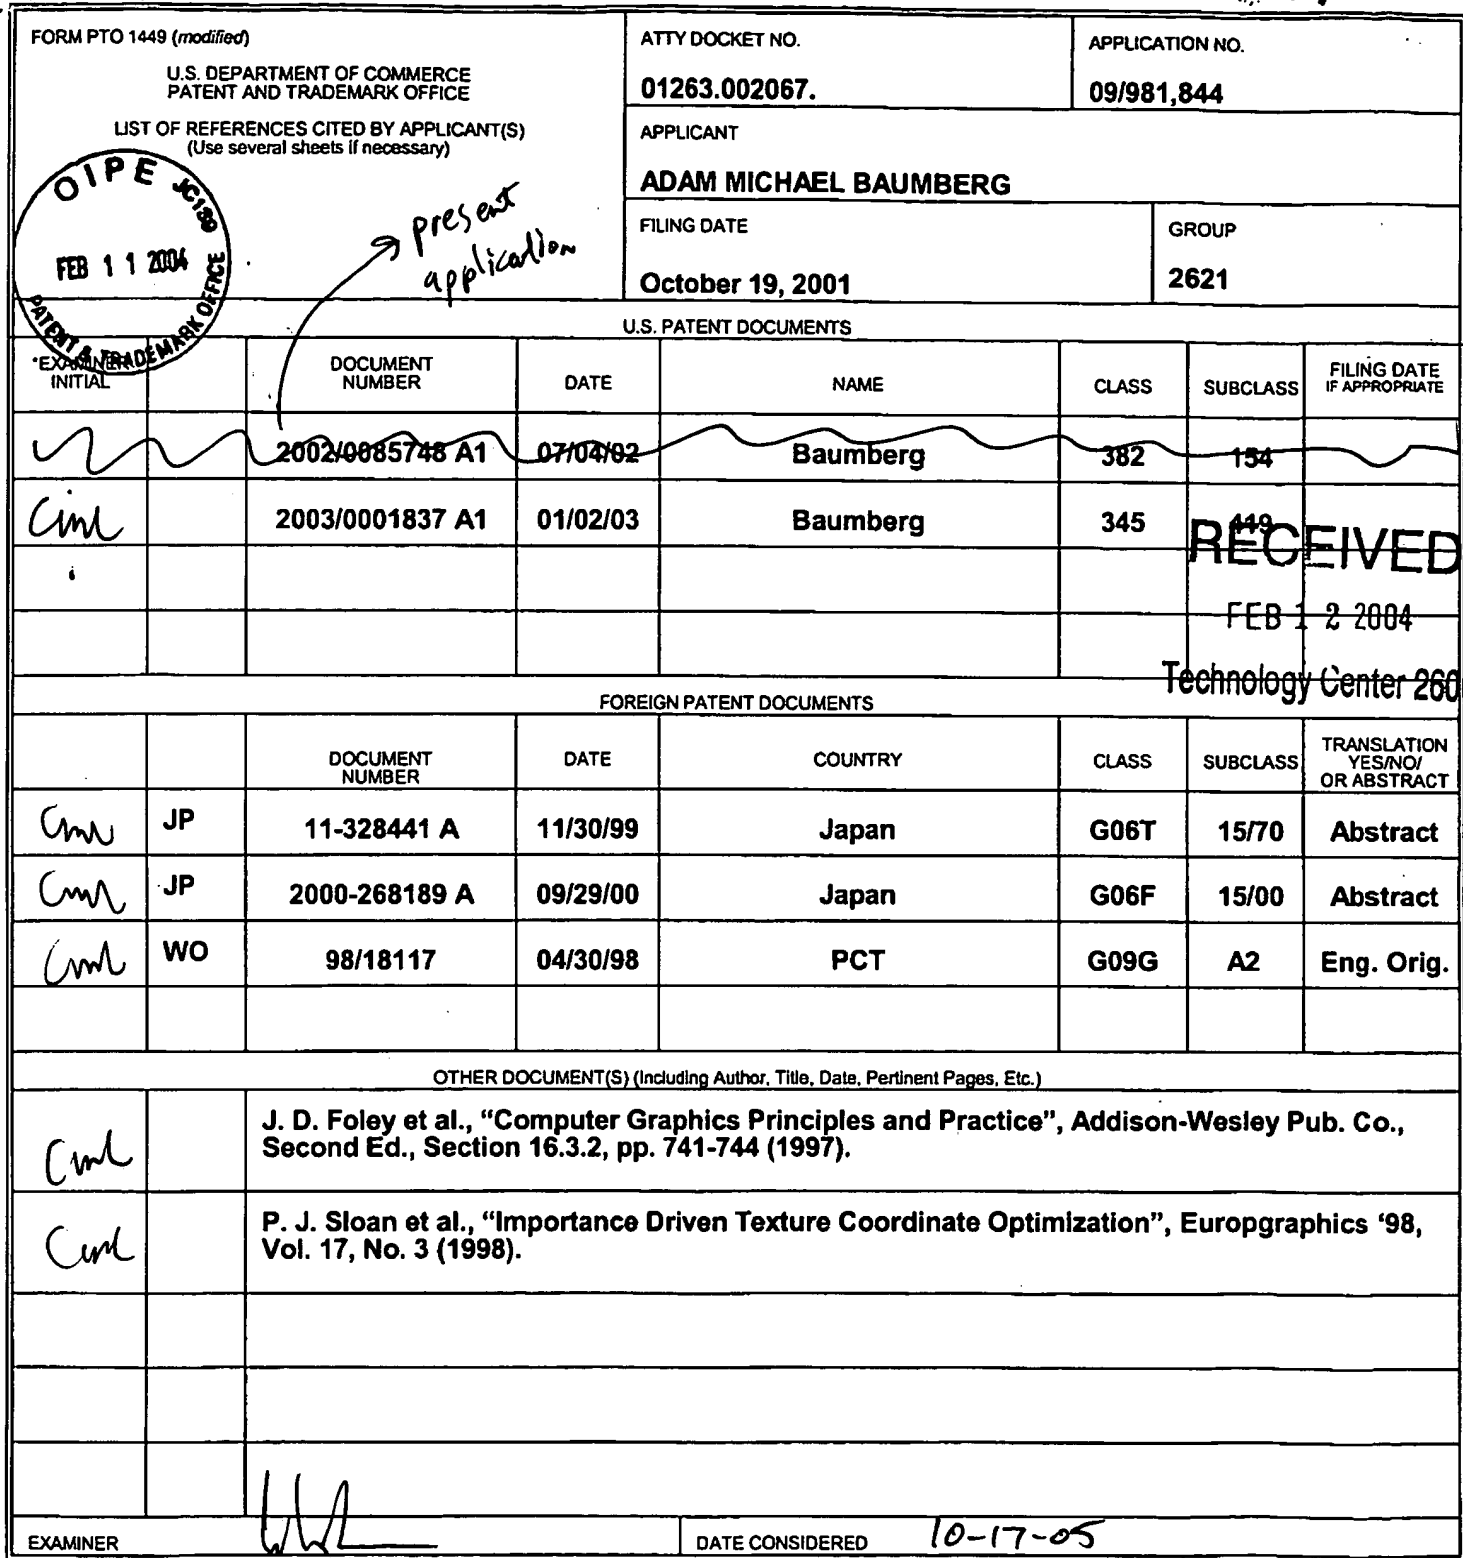 FORM PTO 1449 (modified)
U.S. DEPARTMENT OF COMMERCE
PATENT AND TRADEMARK OFFICE
LIST OF REFERENCES CITED BY APPLICANT(S)
(Use several sheets if necessary)
ATTY DOCKET NO.
01263.002067.
APPLICATION NO.
09/981,844
APPLICANT
ADAM MICHAEL BAUMBERG
FILING DATE
October 19, 2001
GROUP
2621
OIPE JC189
FEB 1 1 2004
PATENT & TRADEMARK OFFICE
present
application
U.S. PATENT DOCUMENTS
*EXAMINER INITIAL DOCUMENT NUMBER DATE NAME CLASS SUBCLASS FILING DATE IF APPROPRIATE
2002/0085748 A1 07/04/02 Baumberg 382 154
2003/0001837 A1 01/02/03 Baumberg 345 419
RECEIVED
FEB 1 2 2004
Technology Center 260
FOREIGN PATENT DOCUMENTS
DOCUMENT NUMBER DATE COUNTRY CLASS SUBCLASS TRANSLATION YES/NO/ OR ABSTRACT
JP 11-328441 A 11/30/99 Japan G06T 15/70 Abstract
JP 2000-268189 A 09/29/00 Japan G06F 15/00 Abstract
WO 98/18117 04/30/98 PCT G09G A2 Eng. Orig.
OTHER DOCUMENT(S) (Including Author, Title, Date, Pertinent Pages, Etc.)
J. D. Foley et al., “Computer Graphics Principles and Practice”, Addison-Wesley Pub. Co.,
Second Ed., Section 16.3.2, pp. 741-744 (1997).
P. J. Sloan et al., “Importance Driven Texture Coordinate Optimization”, Europgraphics ‘98,
Vol. 17, No. 3 (1998).
EXAMINER
DATE CONSIDERED 10-17-05